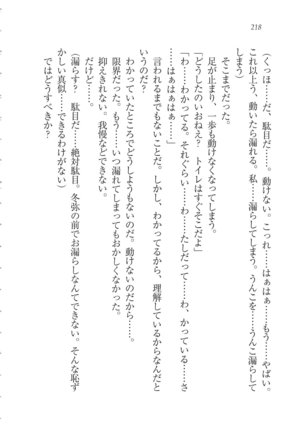 218
（くっほ……だ、駄目だ……。動けない。こっれ……はぁはぁ……もう……やばい。
これ以上、動いたら漏れる。私……漏らしてしまう。うんこを……うんこ漏らして
しまう）
そこまでだった。
足が止まり、一歩も動けなくなってしまう。
「どうしたのいおねえ？　トイレはすぐそこだよ」
「わ……わかってる。それぐらい……わ……たしだって……わ、かっている……さ
……はぁはぁはぁ……」
言われるまでもないことだ。しかし、わかってるから、理解しているからなんだと
いうのだ？
わかっていたところでどうしようもないのだ。動けないのだから……。
限界だった。もう……いつ漏れてしまってもおかしくなかった。
抑えきれない。我慢などできない。
だけど……。
（漏らす？　駄目だ……絶対駄目。冬弥の前でお漏らしなんてできない。そんな恥ず
かしい真似……できるわけがない）
ではどうすべきか？